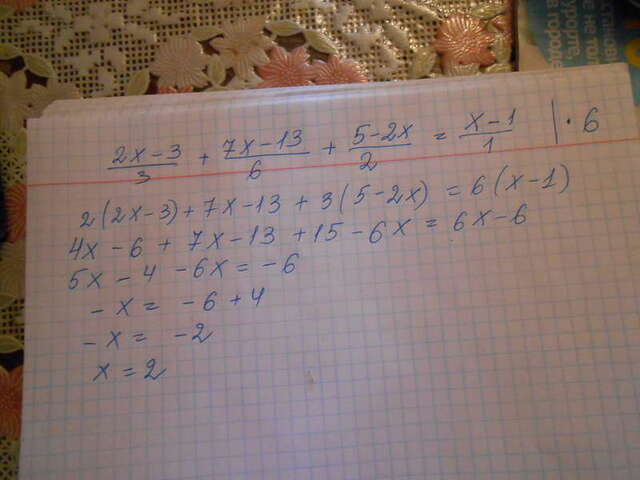 (2x-3)/3 + (7x-13)/6 + (5-2x)/2 = (x-1)/1 | · 6
2(2x-3)+7x-13+3(5-2x)=6(x-1)
4x-6+7x-13+15-6x=6x-6
5x-4-6x=-6
-x=-6+4
-x=-2
x=2